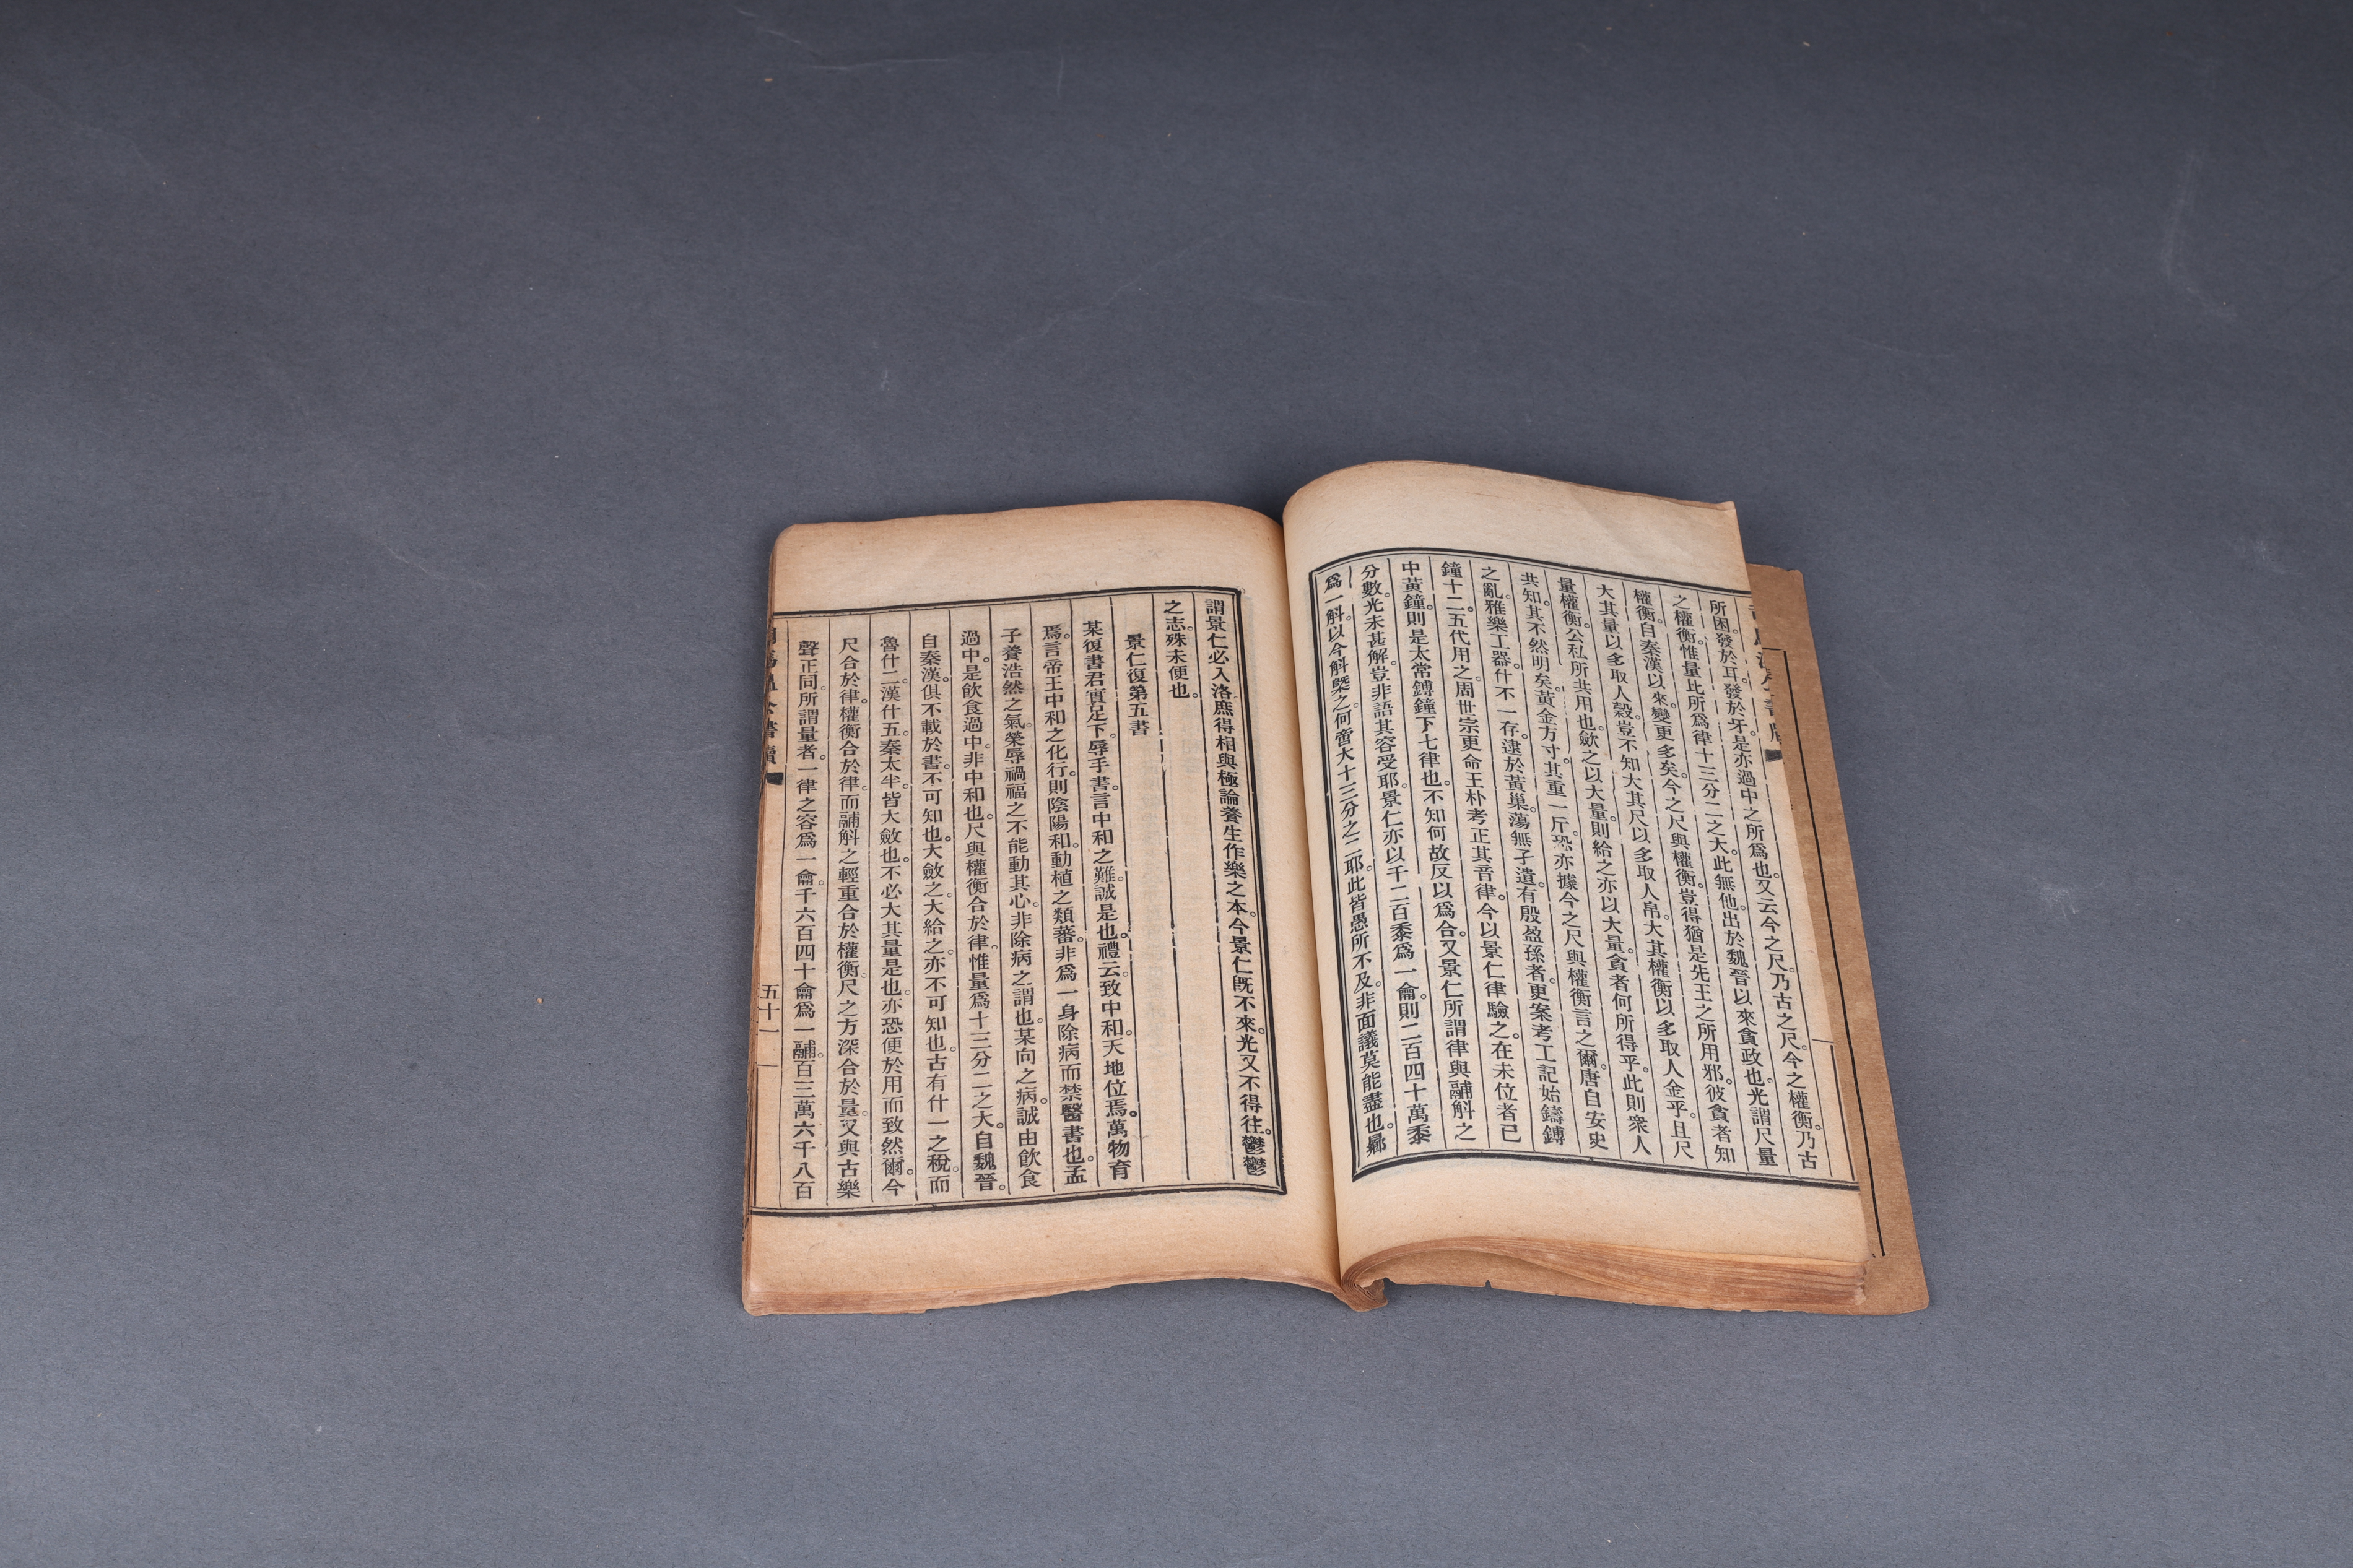 所困。發於耳發於牙。是亦過中之所爲也。又云今之尺。乃古之尺。今之權衡。乃古
之權衡。惟量比所爲律十三分二之大。此無他。出於魏晉以來貪政也。光謂尺量
權衡。自秦漢以來。變更多矣。今之尺與權衡。豈得猶是先王之所用邪。彼貪者知
大其量以多取人穀。豈不知大其尺以多取人帛。大其權衡以多取人金乎。且尺
量權衡。公私所共用也。斂之以大量。則給之亦以大量。貪者何所得乎。此則衆人
共知。其不然明矣。黃金方寸。其重一斤。恐亦據今之尺與權衡言之爾。唐自安史
之亂。雅樂工器。什不一存。逮於黃巢。蕩無孑遺。有殷盈孫者。更案考工記始鑄鎛
鐘十二。五代用之。周世宗更命王朴考正其音律。今以景仁律驗之。在未位者已
中黃鐘。則是太常鎛鐘下七律也。不知何故反以爲合。又景仁所謂律與鬴斛之
分數。光未甚解。豈非語其容受耶。景仁亦以千二百黍爲一龠。則二百四十萬黍
爲一斛。以今斛槩之。何啻大十三分之二耶。此皆愚所不及。非面議莫能盡也。曏
謂景仁必入洛。庶得相與極論養生作樂之本。今景仁既不來。光又不得往。鬱鬱
之志。殊未便也。
景仁復第五書
某復書君實足下。辱手書。言中和之難。誠是也。禮云。致中和。天地位焉。萬物育
焉。言帝王中和之化行。則陰陽和。動植之類蕃。非爲一身除病而禁醫書也。孟
子養浩然之氣。榮辱禍福之不能動其心。非除病之謂也。某向之病。誠由飲食
過中。是飲食過中。非中和也。尺與權衡合於律。惟量爲十三分二之大。自魏晉。
自秦漢。俱不載於書。不可知也。大斂之。大給之。亦不可知也。古有什一之稅。而
魯什二。漢什五。秦太半。皆大斂也。不必大其量是也。亦恐便於用而致然爾。今
尺合於律。權衡合於律。而鬴斛之輕重合於權衡。尺之方深合於量。又與古樂
聲正同。所謂量者。一律之容爲一龠。千六百四十龠爲一鬴。百三萬六千八百
五十一